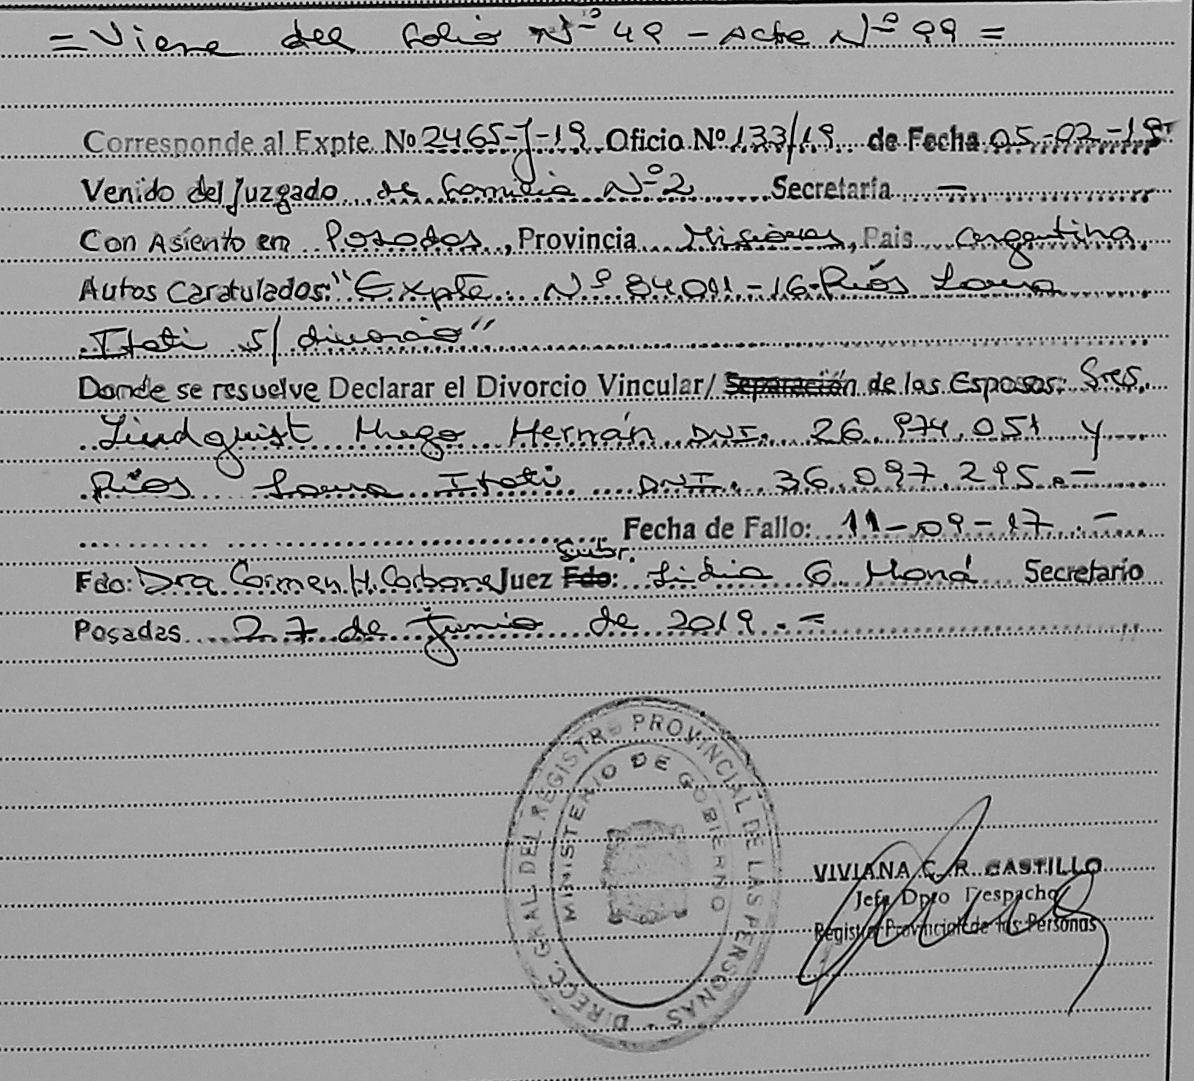 = Viene del folio Nº 49 - Acta Nº 99 =
Corresponde al Expte. Nº 2465-J-19 Oficio Nº 133/19 de Fecha 05-02-19
Venido del Juzgado de familia Nº 2 Secretaría —
Con Asiento en Posadas, Provincia Misiones, Pais argentina
Autos Caratulados: "Expte. Nº 84011-16-Ríos Laura
Itati s/ divorcio"
Donde se resuelve Declarar el Divorcio Vincular/ Separación de las Esposos: Sres.
Lindquist Hugo Hernán DNI. 26.974.051 y
Ríos Laura Itati DNI. 36.097.295.-
Fecha de Fallo: 11-09-17.-
Subr.
Fdo: Dra Carmen H. Carbone Juez Fdo: Lidia G Secretario
Posadas 27 de junio de 2019.=
DIRECC. GRAL. DEL REGISTRO PROVINCIAL DE LAS PERSONAS -
MINISTERIO DE GOBIERNO
VIVIANA C. R. CASTILLO
Jefa Dpto Despacho
Registro Provincial de las Personas